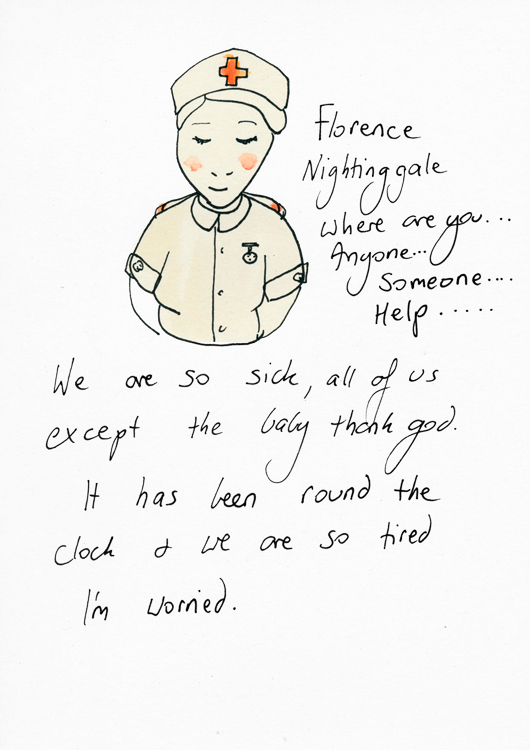 Florence
Nightinggale
where are you...
Anyone...
Someone....
Help .....
We are so sick, all of us
except the baby thank god.
It has been round the
clock & we are so tired
I'm worried.